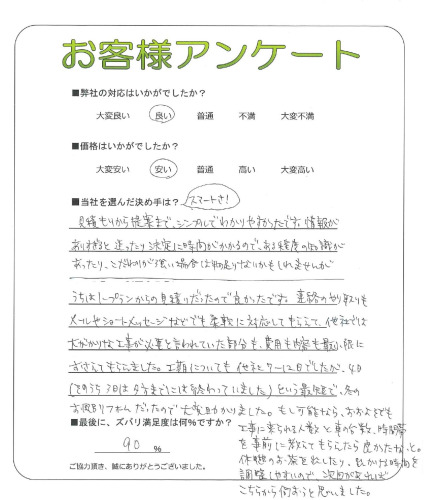 お客様アンケート
■弊社の対応はいかがでしたか？
大変良い　良い　普通　不満　大変不満
■価格はいかがでしたか？
大変安い　安い　普通　高い　大変高い
■当社を選んだ決め手は？　スマートさ！
見積もりから提案まで、シンプルでわかりやすかったです。情報が
ありすぎると迷ったり決定に時間がかかるので、ある程度の知識が
あったり、こだわりが強い場合は物足りないかもしれませんが
うちは一プランからの見積りだったので良かったですね。連絡のやり取りも
メールやショートメッセージなどでも柔軟に対応してもらえて、他社では
大がかりな工事が必要と言われていた部分も、費用も内容も最小限に
おさえてもらえました。工期についても他社7〜12日でしたが、4日
(そのうち3日は夕方までには終わっていました)という最短で、冬の
お風呂リフォームだったので大変助かりました。もし可能なら、おおよそでも
工事に来られる人数と車の台数、時間帯
を事前に教えてもらえたら良かったなと。
休憩のお茶を出したり、出かける時間を
調整しやすいので、次回があれば
こちらから伺おうと思いました。
■最後に、ズバリ満足度は何％ですか？
90 ％
ご協力頂き、誠にありがとうございました。